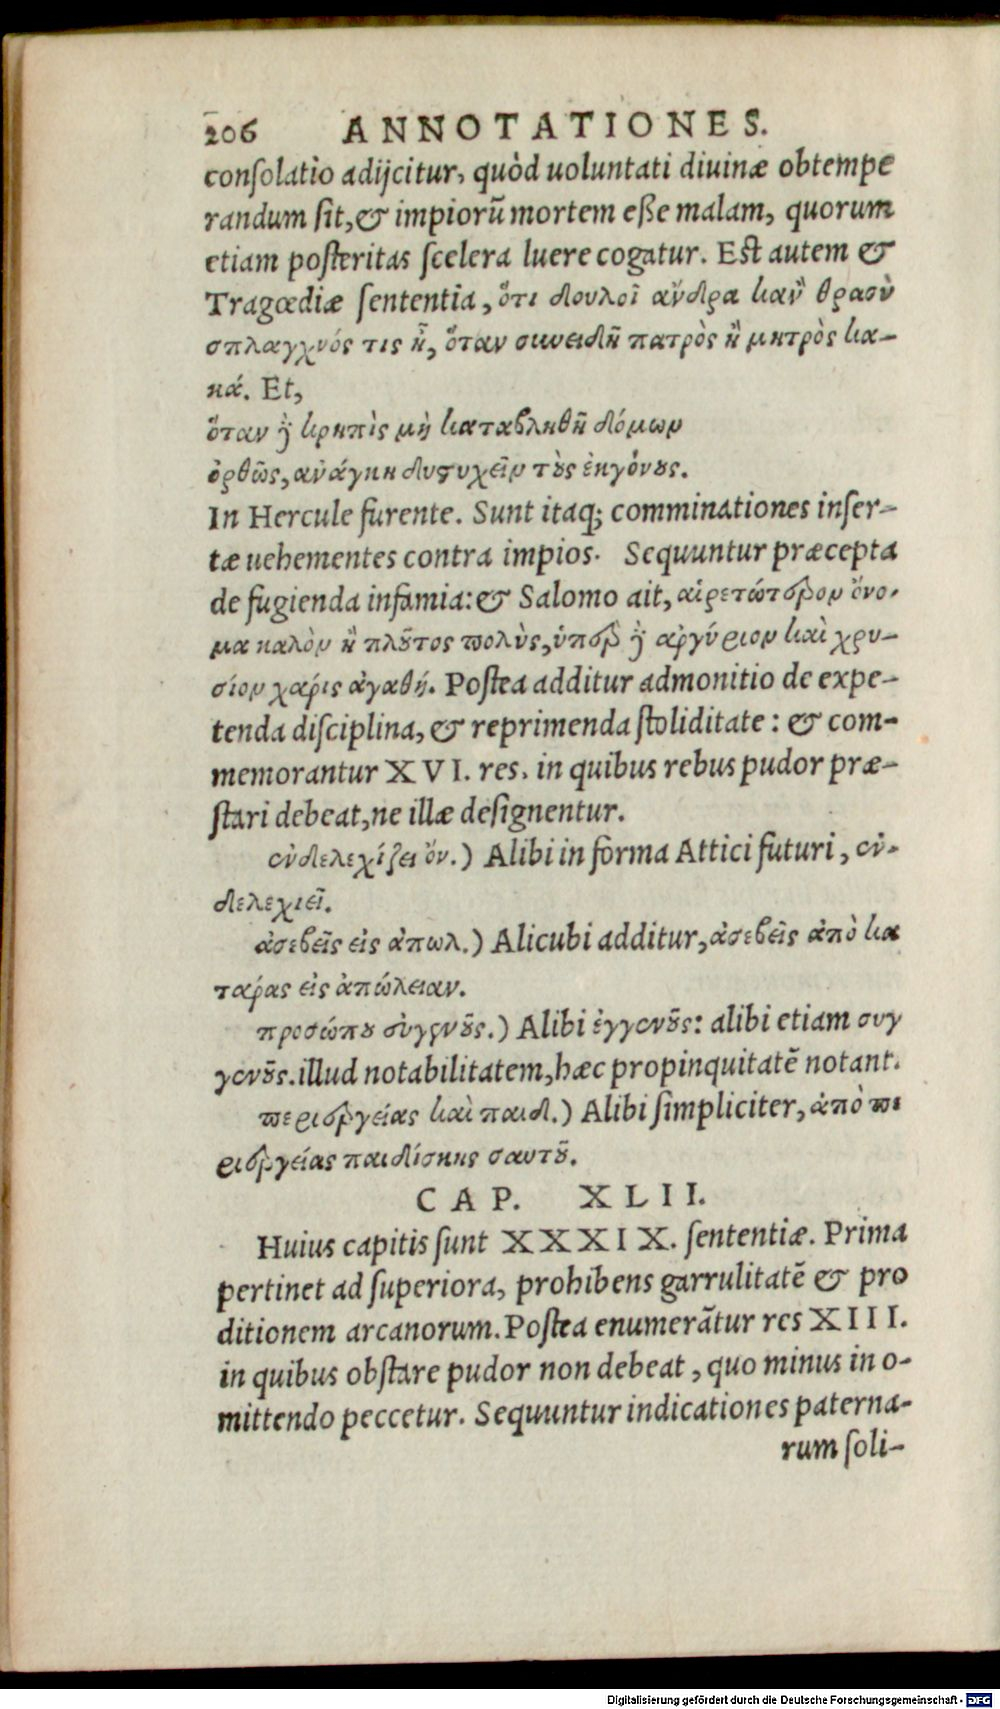 206 ANNOTATIONES.
conſolatio adijcitur, quòd uoluntati diuinæ obtempe
randum ſit, & impiorũ mortem eße malam, quorum
etiam poſteritas ſcelera luere cogatur. Eſt autem &
Tragœdiæ ſententia, ὅτι δουλοῖ ἄνδρα κἂν θρασὺ
σπλαγχνός τις ᾖ, ὅταν συνειδῇ πατρὸς ἢ μητρὸς κα-
κά. Et,
ὅταν ᾖ κρηπὶς μὴ καταβληθῇ δόμων
ὀρθῶς, ἀνάγκη δυςυχεῖν τοὺς ἐκγόνους.
In Hercule furente. Sunt itaq; comminationes inſer-
tæ uehementes contra impios. Sequuntur præcepta
de fugienda infamia: & Salomo ait, αἱρετώτερον ὄνο-
μα καλὸν ἢ πλοῦτος πολὺς, ὑπὲρ ᾖ ἀργύριον καὶ χρυ-
σίον χάρις ἀγαθή. Poſtea additur admonitio de expe-
tenda diſciplina, & reprimenda ſtoliditate: & com-
memorantur XVI. res, in quibus rebus pudor præ-
ſtari debeat, ne illæ deſignentur.
ἐνδελεχίζει ὄν.) Alibi in forma Attici futuri, ἐν-
δελεχιεῖ.
ἀσεβεῖς εἰς ἀπωλ.) Alicubi additur, ἀσεβεῖς ἀπὸ κα
τάρας εἰς ἀπώλειαν.
προσώπου συγγνοῦς.) Alibi ἐγγενοῦς: alibi etiam συγ
γενοῦς. illud notabilitatem, hæc propinquitatẽ notant.
περιεργείας καὶ παιδ.) Alibi ſimpliciter, ἀπὸ πε
ριεργείας παιδίσκης σαυτοῦ.
CAP. XLII.
Huius capitis ſunt XXXIX. ſententiæ. Prima
pertinet ad ſuperiora, prohibens garrulitatẽ & pro
ditionem arcanorum. Poſtea enumerãtur res XIII.
in quibus obſtare pudor non debeat, quo minus in o-
mittendo peccetur. Sequuntur indicationes paterna-
rum ſoli-
Digitalisierung gefördert durch die Deutsche Forschungsgemeinschaft - DFG